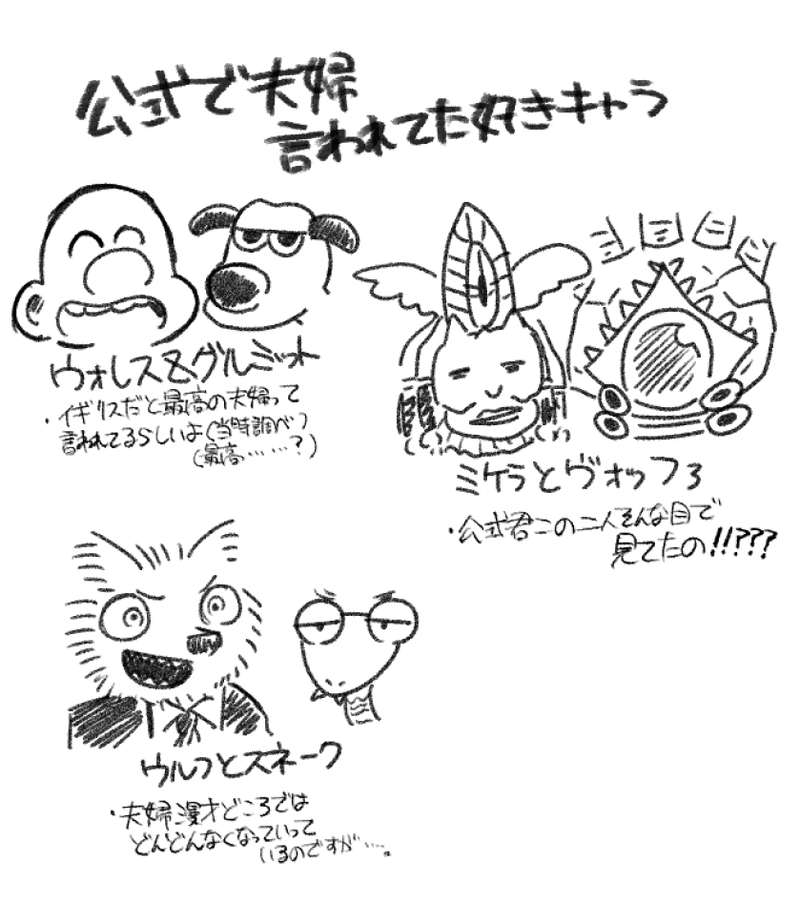 公式で夫婦
言われてた好きキャラ
ウォレス&グルミット
・イギリスだと最高の夫婦って
言われてるらしいよ(当時調べ)
(最高……?)
ミケラとヴォッフ3
・公式君この二人そんな目で
見てたの!!???
ウルフとスネーク
・夫婦漫才どころでは
どんどんなくなっていって
いるのですが…。